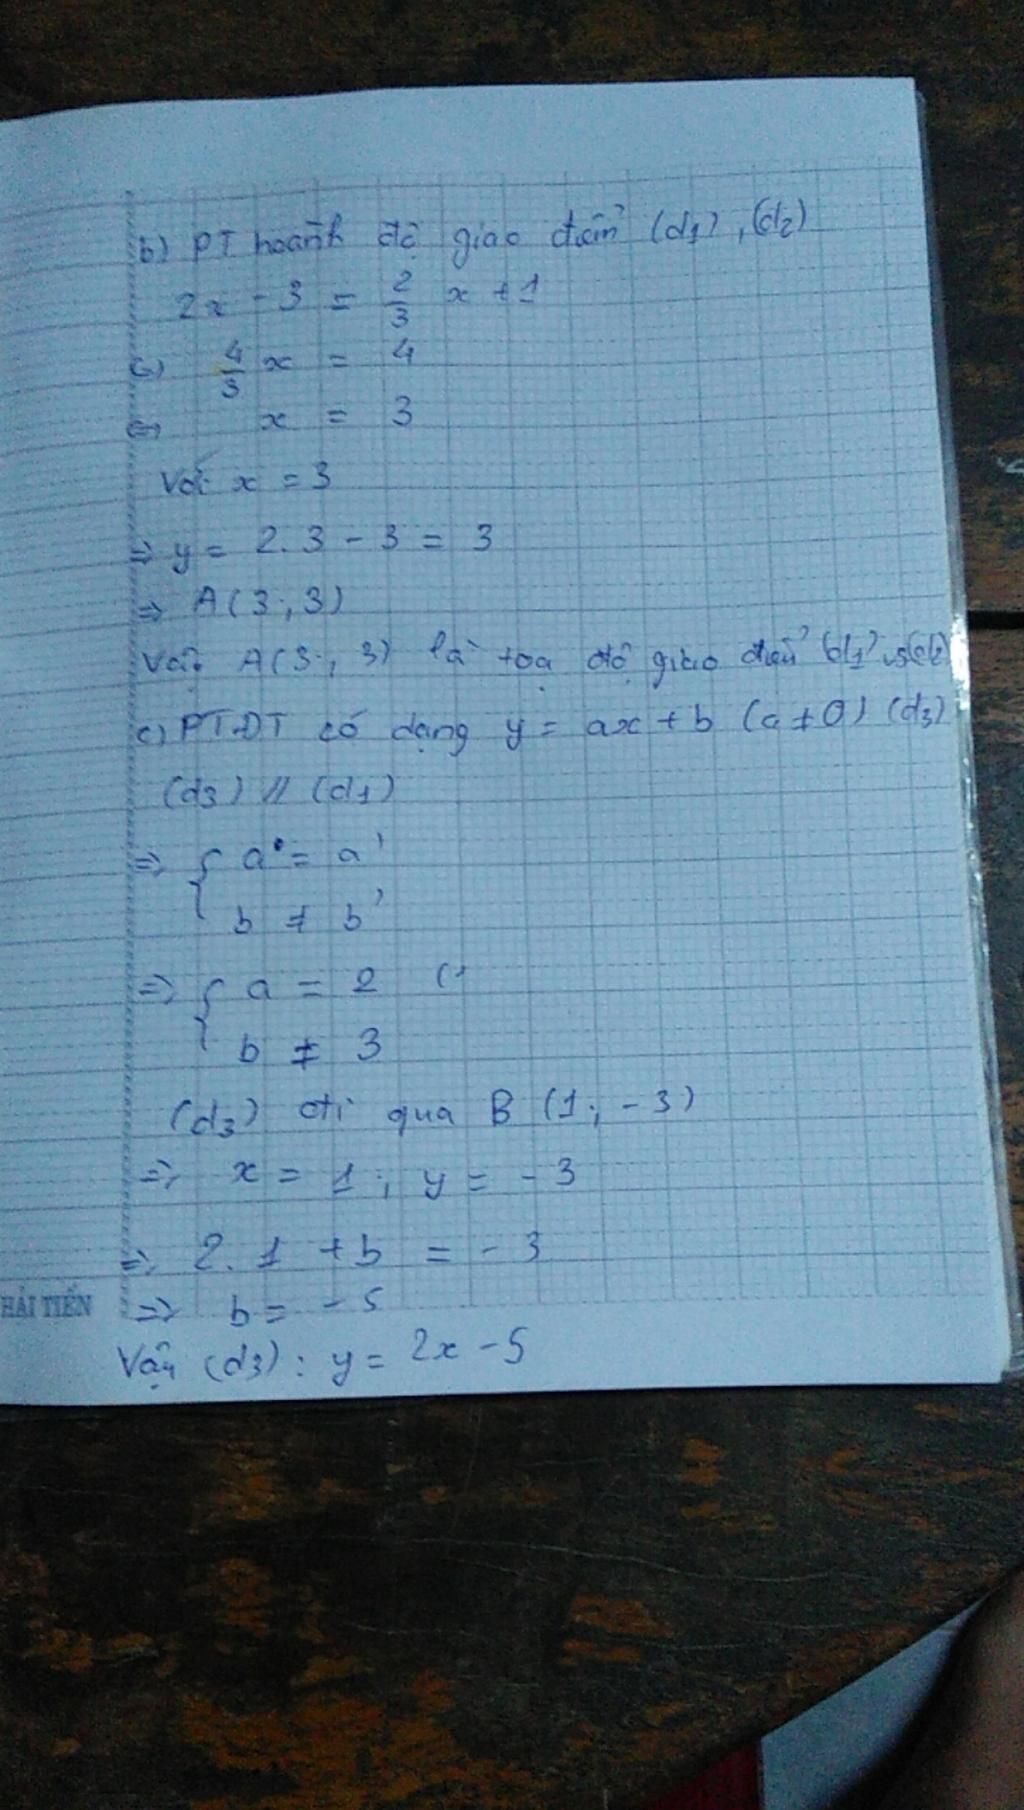 b) PT hoành độ giao điểm (d1), (d2)
2x - 3 = 2/3 x + 1
(=) 4/3 x = 4
(=) x = 3
Với x = 3
=> y = 2.3 - 3 = 3
=> A(3; 3)
Vậy A(3; 3) là tọa độ giao điểm (d1) và (d2)
c) PTĐT có dạng y = ax + b (a ≠ 0) (d3)
(d3) // (d1)
=> { a = a'
b ≠ b'
=> { a = 2 (
b ≠ 3
(d3) đi qua B (1; -3)
=> x = 1; y = -3
=> 2.1 + b = -3
=> b = -5
HẢI TIẾN
Vậy (d3): y = 2x - 5